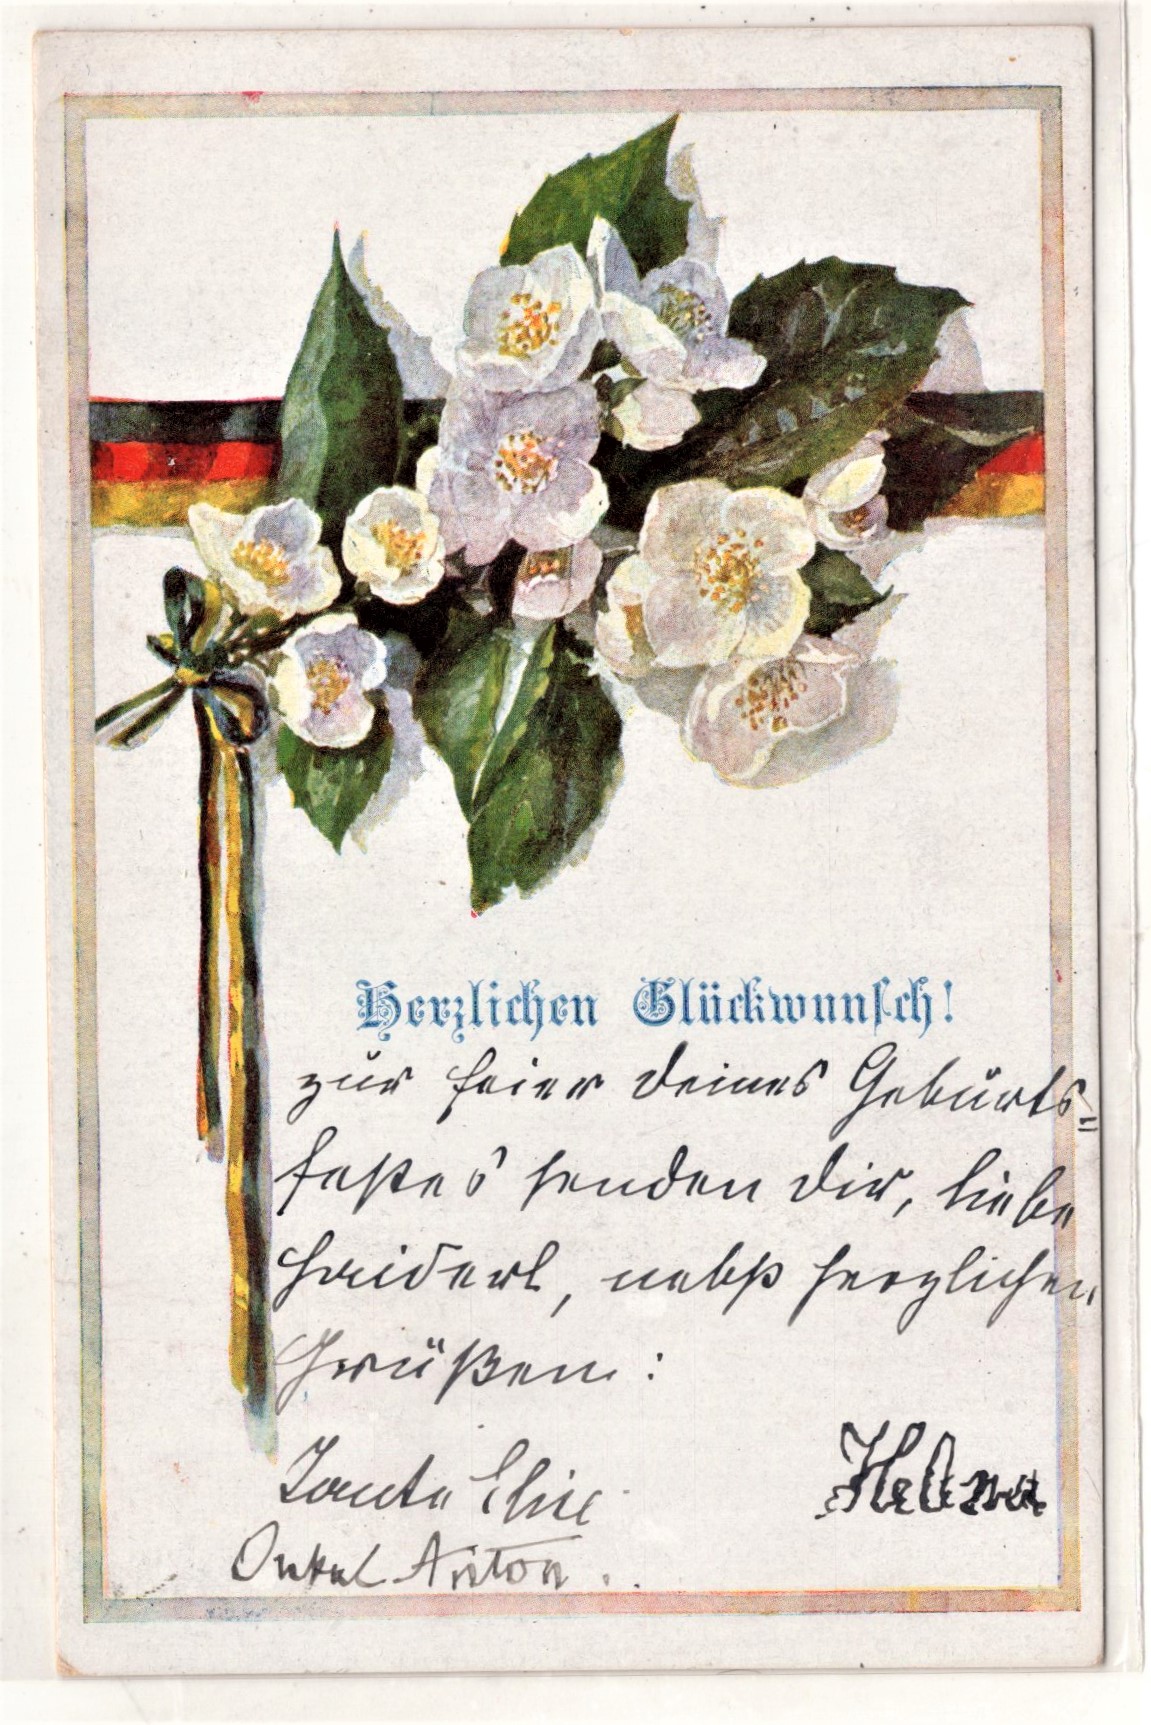 Herzlichen Glückwunsch!
zur Feier deines Geburts=
festes senden dir, liebe
nebst herzlichen
Grüßen:
Tante Elise
Helena
Onkel Anton.